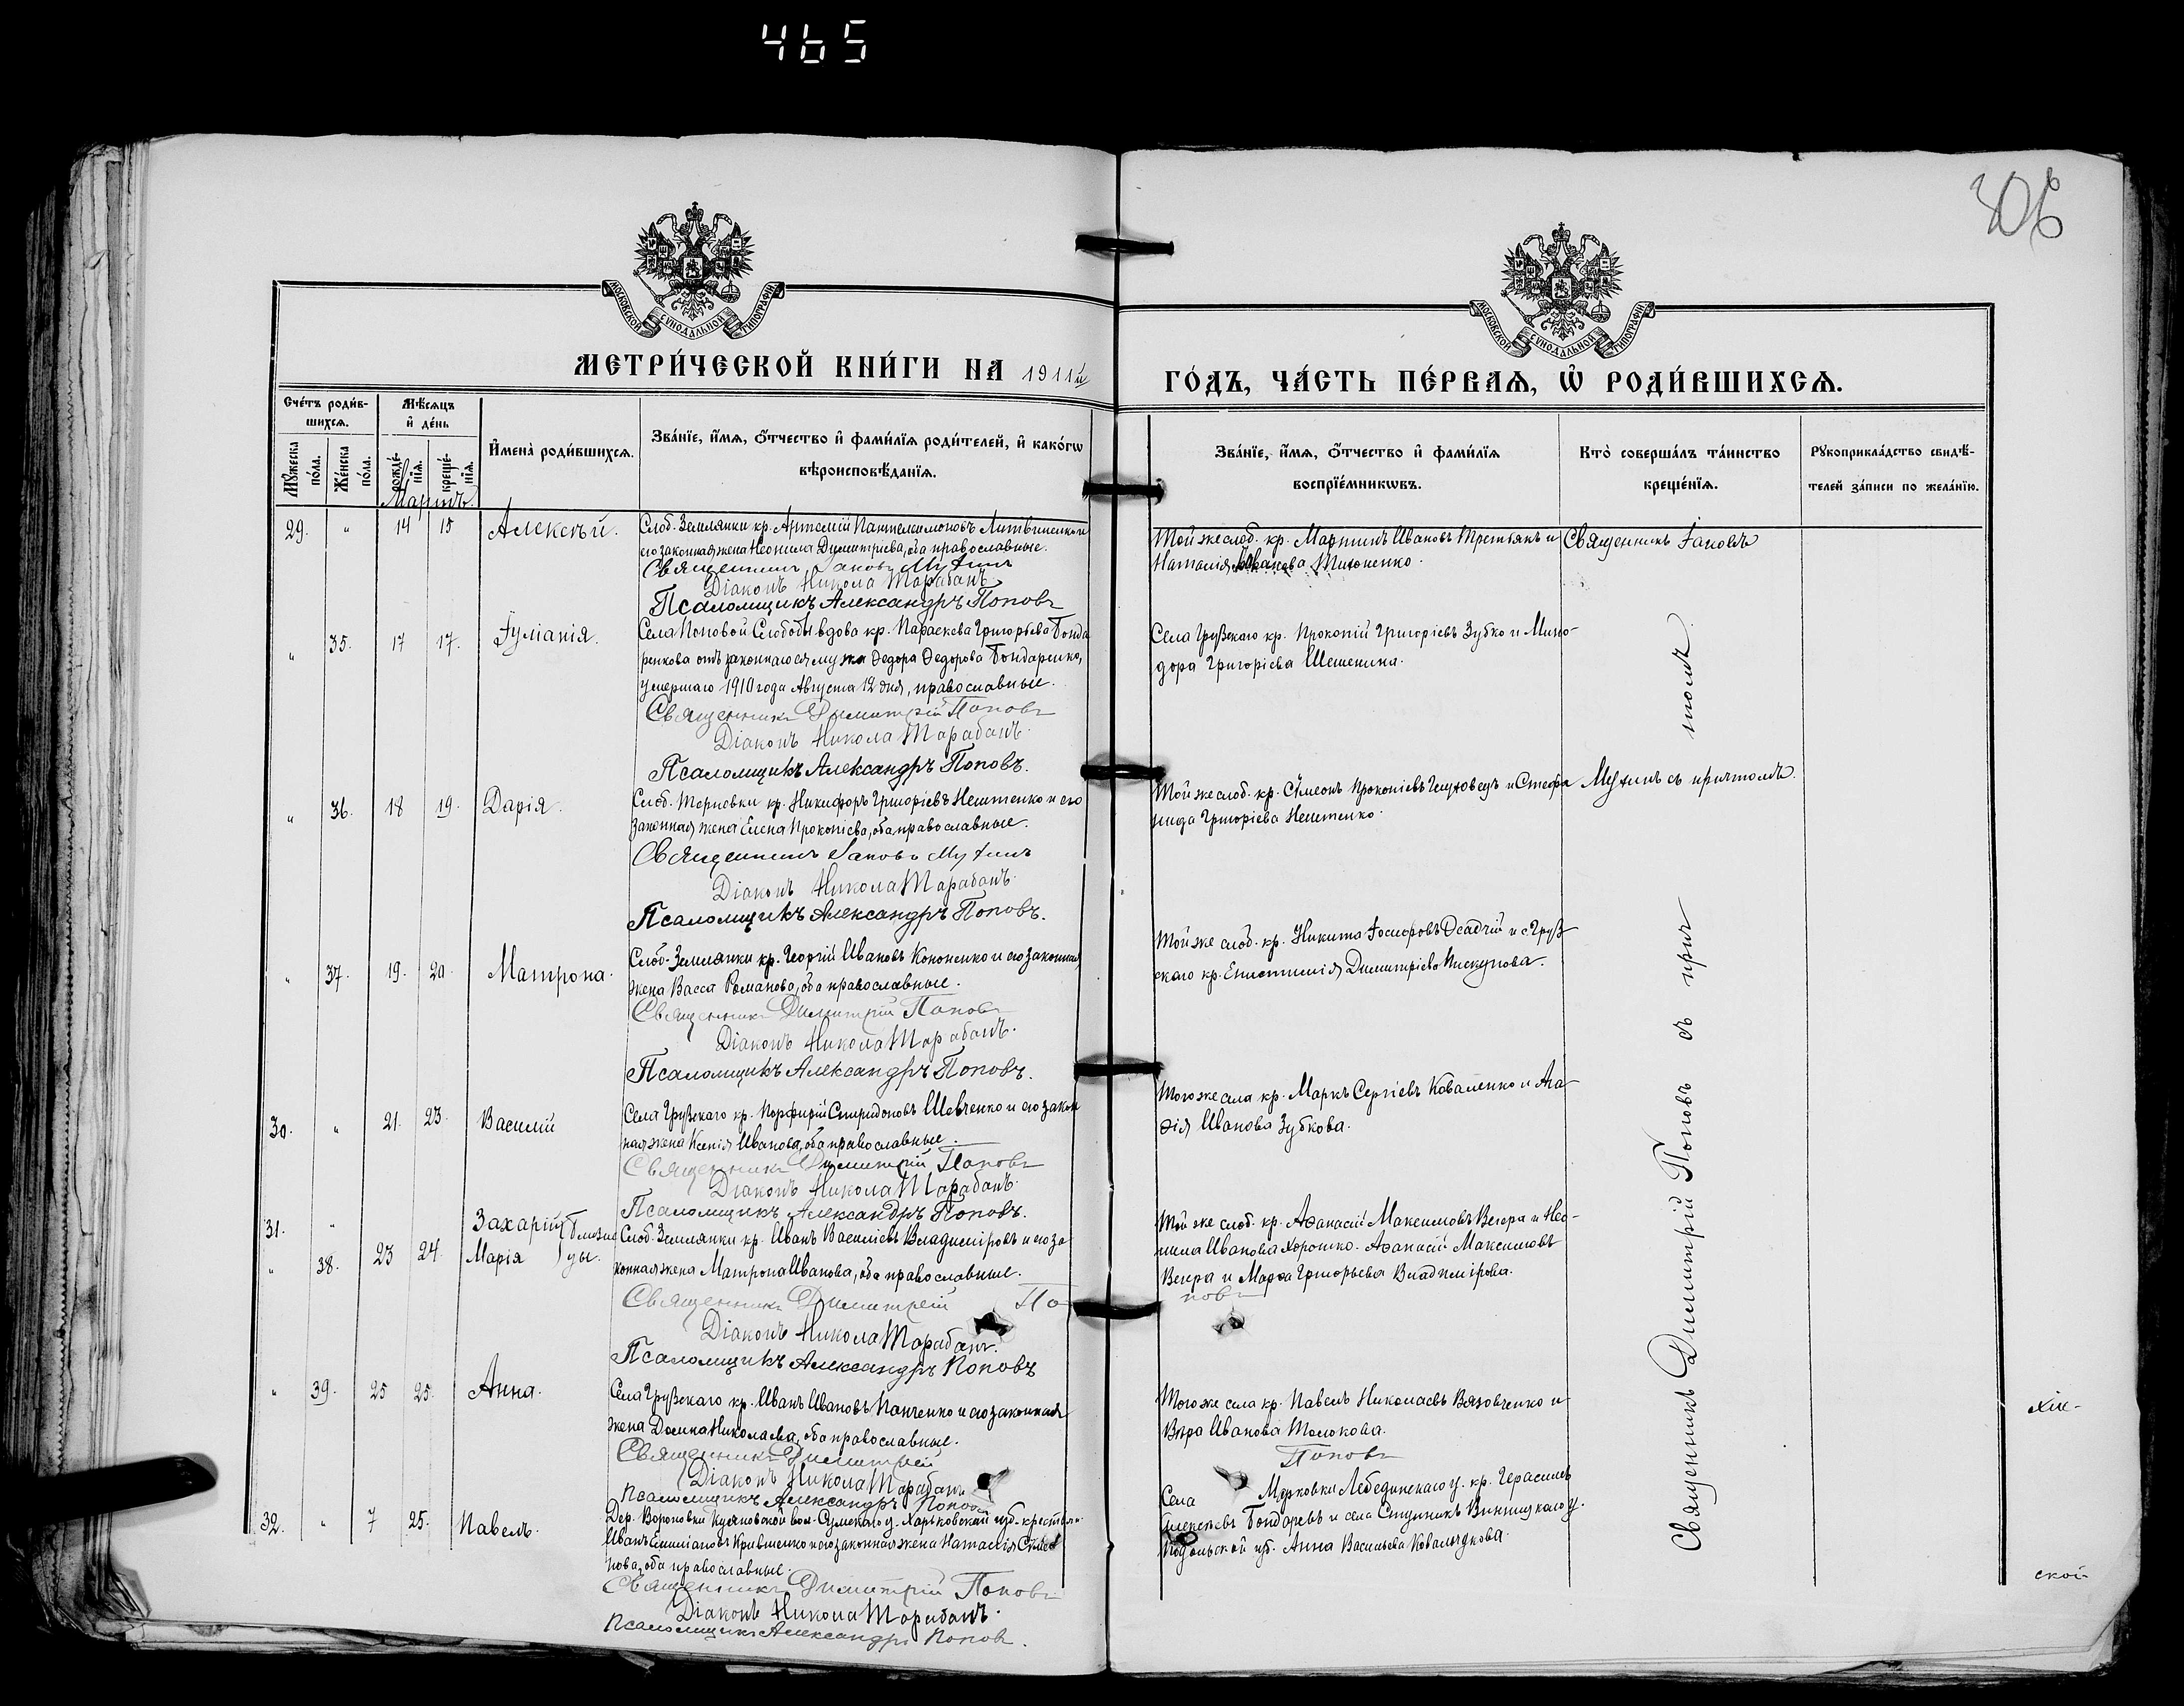 465
306
МОСКОВСКОЙ СѴНОДАЛЬНОЙ ТИПОГРАФІИ
МОСКОВСКОЙ СѴНОДАЛЬНОЙ ТИПОГРАФІИ
МЕТРИ́ЧЕСКОЙ КНИ́ГИ НА 1911й
ГО́ДЪ, ЧА́СТЬ ПЕ́РВАѦ, Ѡ҆ РОДИ́ВШИХСѦ.
Сче́тъ роди́в-
шихсѧ.
Мѣ́сѧцъ
и҆ де́нь
Мꙋ́жеска по́ла.
Же́нска по́ла.
рожде́-
нїѧ.
креще́-
нїѧ.
И҆мена̀ роди́вшихсѧ.
Зва́нїе, и҆́мѧ, ѻ҆́тчество и҆ фами́лїѧ роди́телей, и҆ како́гѡ
вѣроисповѣ́данїѧ.
Зва́нїе, и҆́мѧ, ѻ҆́тчество и҆ фами́лїѧ
воспрїе́мникѡвъ.
Кто̀ соверша́лъ та́инство
креще́нїѧ.
Рꙋкоприкла́дство свидѣ́-
телей за́писи по жела́нїю.
Мартъ
29. " 14 15 Алексѣй.
Слоб. Землянки кр. Артемій Пантелимоновъ Литвиненко и
его законная жена Неонила Димитріева, оба православные.
Священникъ Іаковъ Мухинъ
Діаконъ Никола Тарабанъ
Псаломщикъ Александръ Поповъ
Той же слоб. кр. Мартинъ Ивановъ Третьякъ и
Наталія Тихоненко.
Священникъ Іаковъ
" 35. 17 17. Іуліанія.
Села Поповой Слободы вдова кр. Параскева Григорьева Бонда
ренкова отъ законнаго ея мужа Ѳедора Ѳедорова Бондаренко,
умершаго 1910 года Августа 12 дня, православные.
Священникъ Димитрій Поповъ
Діаконъ Никола Тарабанъ.
Псаломщикъ Александръ Поповъ.
Села Грузскаго кр. Прокопій Григоріевъ Зубко и Мино-
дора Григоріева
" 36. 18 19. Дарія.
Слоб. Терновки кр. Никифоръ Григоріевъ Нештенко и его
законная жена Елена Прокопіева, оба православные.
Священникъ Іаковъ Мухинъ
Діаконъ Никола Тарабанъ.
Псаломщикъ Александръ Поповъ.
Той же слоб. кр. Сѵмеонъ Прокопіевъ и Стефа
нида Григоріева Нештенко.
Мухинъ съ причтомъ.
" 37. 19. 20. Матрона.
Слоб. Землянки кр. Георгій Ивановъ Кононенко и его законная
жена Васса Романова, оба православные.
Священникъ Димитрій Поповъ
Діаконъ Никола Тарабанъ.
Псаломщикъ Александръ Поповъ.
Той же слоб. кр. Никита Іосифовъ Осадчій и с. Груз-
скаго кр. Епистимія Димитріева Пискунова.
30. " 21. 23. Василій
Села Грузскаго кр. Порфирій Спиридоновъ Шевченко и его закон
ная жена Ксенія Иванова, оба православные.
Священникъ Димитрій Поповъ
Діаконъ Никола Тарабанъ.
Псаломщикъ Александръ Поповъ.
Того же села кр. Маркъ Сергіевъ Коваленко и Ага-
ѳія Иванова Зубкова.
31. " Захарій близне
" 38. 23 24. Марія цы.
Слоб. Землянки кр. Иванъ Василіевъ Владиміровъ и его за
конная жена Матрона Иванова, оба православные.
Священникъ Димитрій По
повъ
Діаконъ Никола Тарабанъ.
Псаломщикъ Александръ Поповъ
Той же слоб. кр. Аѳанасій Максимовъ Вечера и Нео-
нила Иванова Хорошко. Аѳанасій Максимовъ
Вечера и Марѳа Григорьева Владимірова.
" 39. 25 25. Анна.
Села Грузскаго кр. Иванъ Ивановъ Панченко и его законная
жена Домна Николаева, оба православные.
Священникъ Димитрій
Поповъ
Діаконъ Никола Тарабанъ
Псаломщикъ Александръ Поповъ
Того же села кр. Павелъ Николаевъ Вязовченко и
Вѣра Иванова Толокова.
32. " 7 25. Павелъ.
Дер. Вороновки вол. Сумскаго у. Харьковской губ. крест.
Иванъ Емиліановъ Кривченко и его законная жена Наталія
нова, оба православные.
Священникъ Димитрій Поповъ
Діаконъ Никола Тарабанъ.
Псаломщикъ Александръ Поповъ.
Села Марковки Лебединскаго у. кр. Герасимъ
Бондаревъ и села Винницкаго у.
Подольской губ. Анна Васильева
Священникъ Димитрій Поповъ съ прич
томъ.
ской